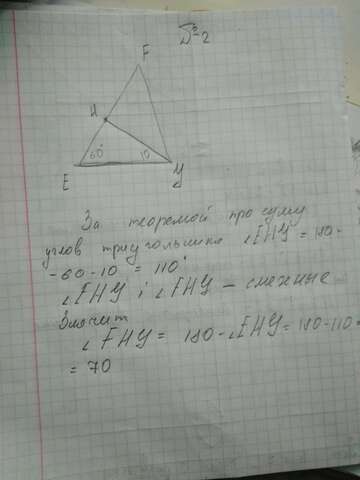 №2
F
H
60°
10
E
У
За теоремой про суму
углов триугольника ∠EHY = 180-
-60-10 = 110°
∠EHY і ∠FHY – смежные
Значит
∠FHY = 180-∠EHY = 180-110=
= 70